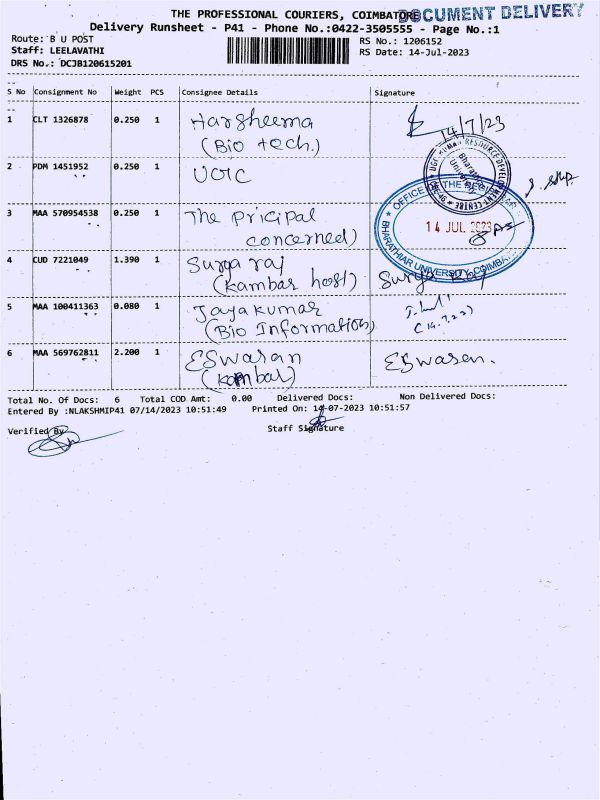 THE PROFESSIONAL COURIERS, COIMBATORE
DOCUMENT DELIVERY
Delivery Runsheet - P41 - Phone No.:0422-3505555 - Page No.:1
Route: B U POST
RS No.: 1206152
Staff: LEELAVATHI
RS Date: 14-Jul-2023
DRS No.: DCJB120615201
S No Consignment No Weight PCS Consignee Details Signature
1 CLT 1326878 0.250 1 Harsheema
(Bio tech.)
14/7/23
2 PDM 1451952 0.250 1 UGC
UGC HUMAN RESOURCE DEVELOPMENT CENTRE
3 MAA 570954538 0.250 1 The pricipal
concerned)
OFFICE THE REGISTRAR
14 JUL 2023
BHARATHIAR UNIVERSITY, COIMBA
4 CUD 7221049 1.390 1 Surya raj
(kambar host)
Surya Raj
5 MAA 100411363 0.080 1 Jayakumar
(Bio Information)
6 MAA 569762811 2.200 1 ESwaran
(kambar)
ESwaran.
Total No. Of Docs: 6 Total COD Amt: 0.00 Delivered Docs: Non Delivered Docs:
Entered By :NLAKSHMIP41 07/14/2023 10:51:49 Printed On: 14-07-2023 10:51:57
Verified By
Staff Signature